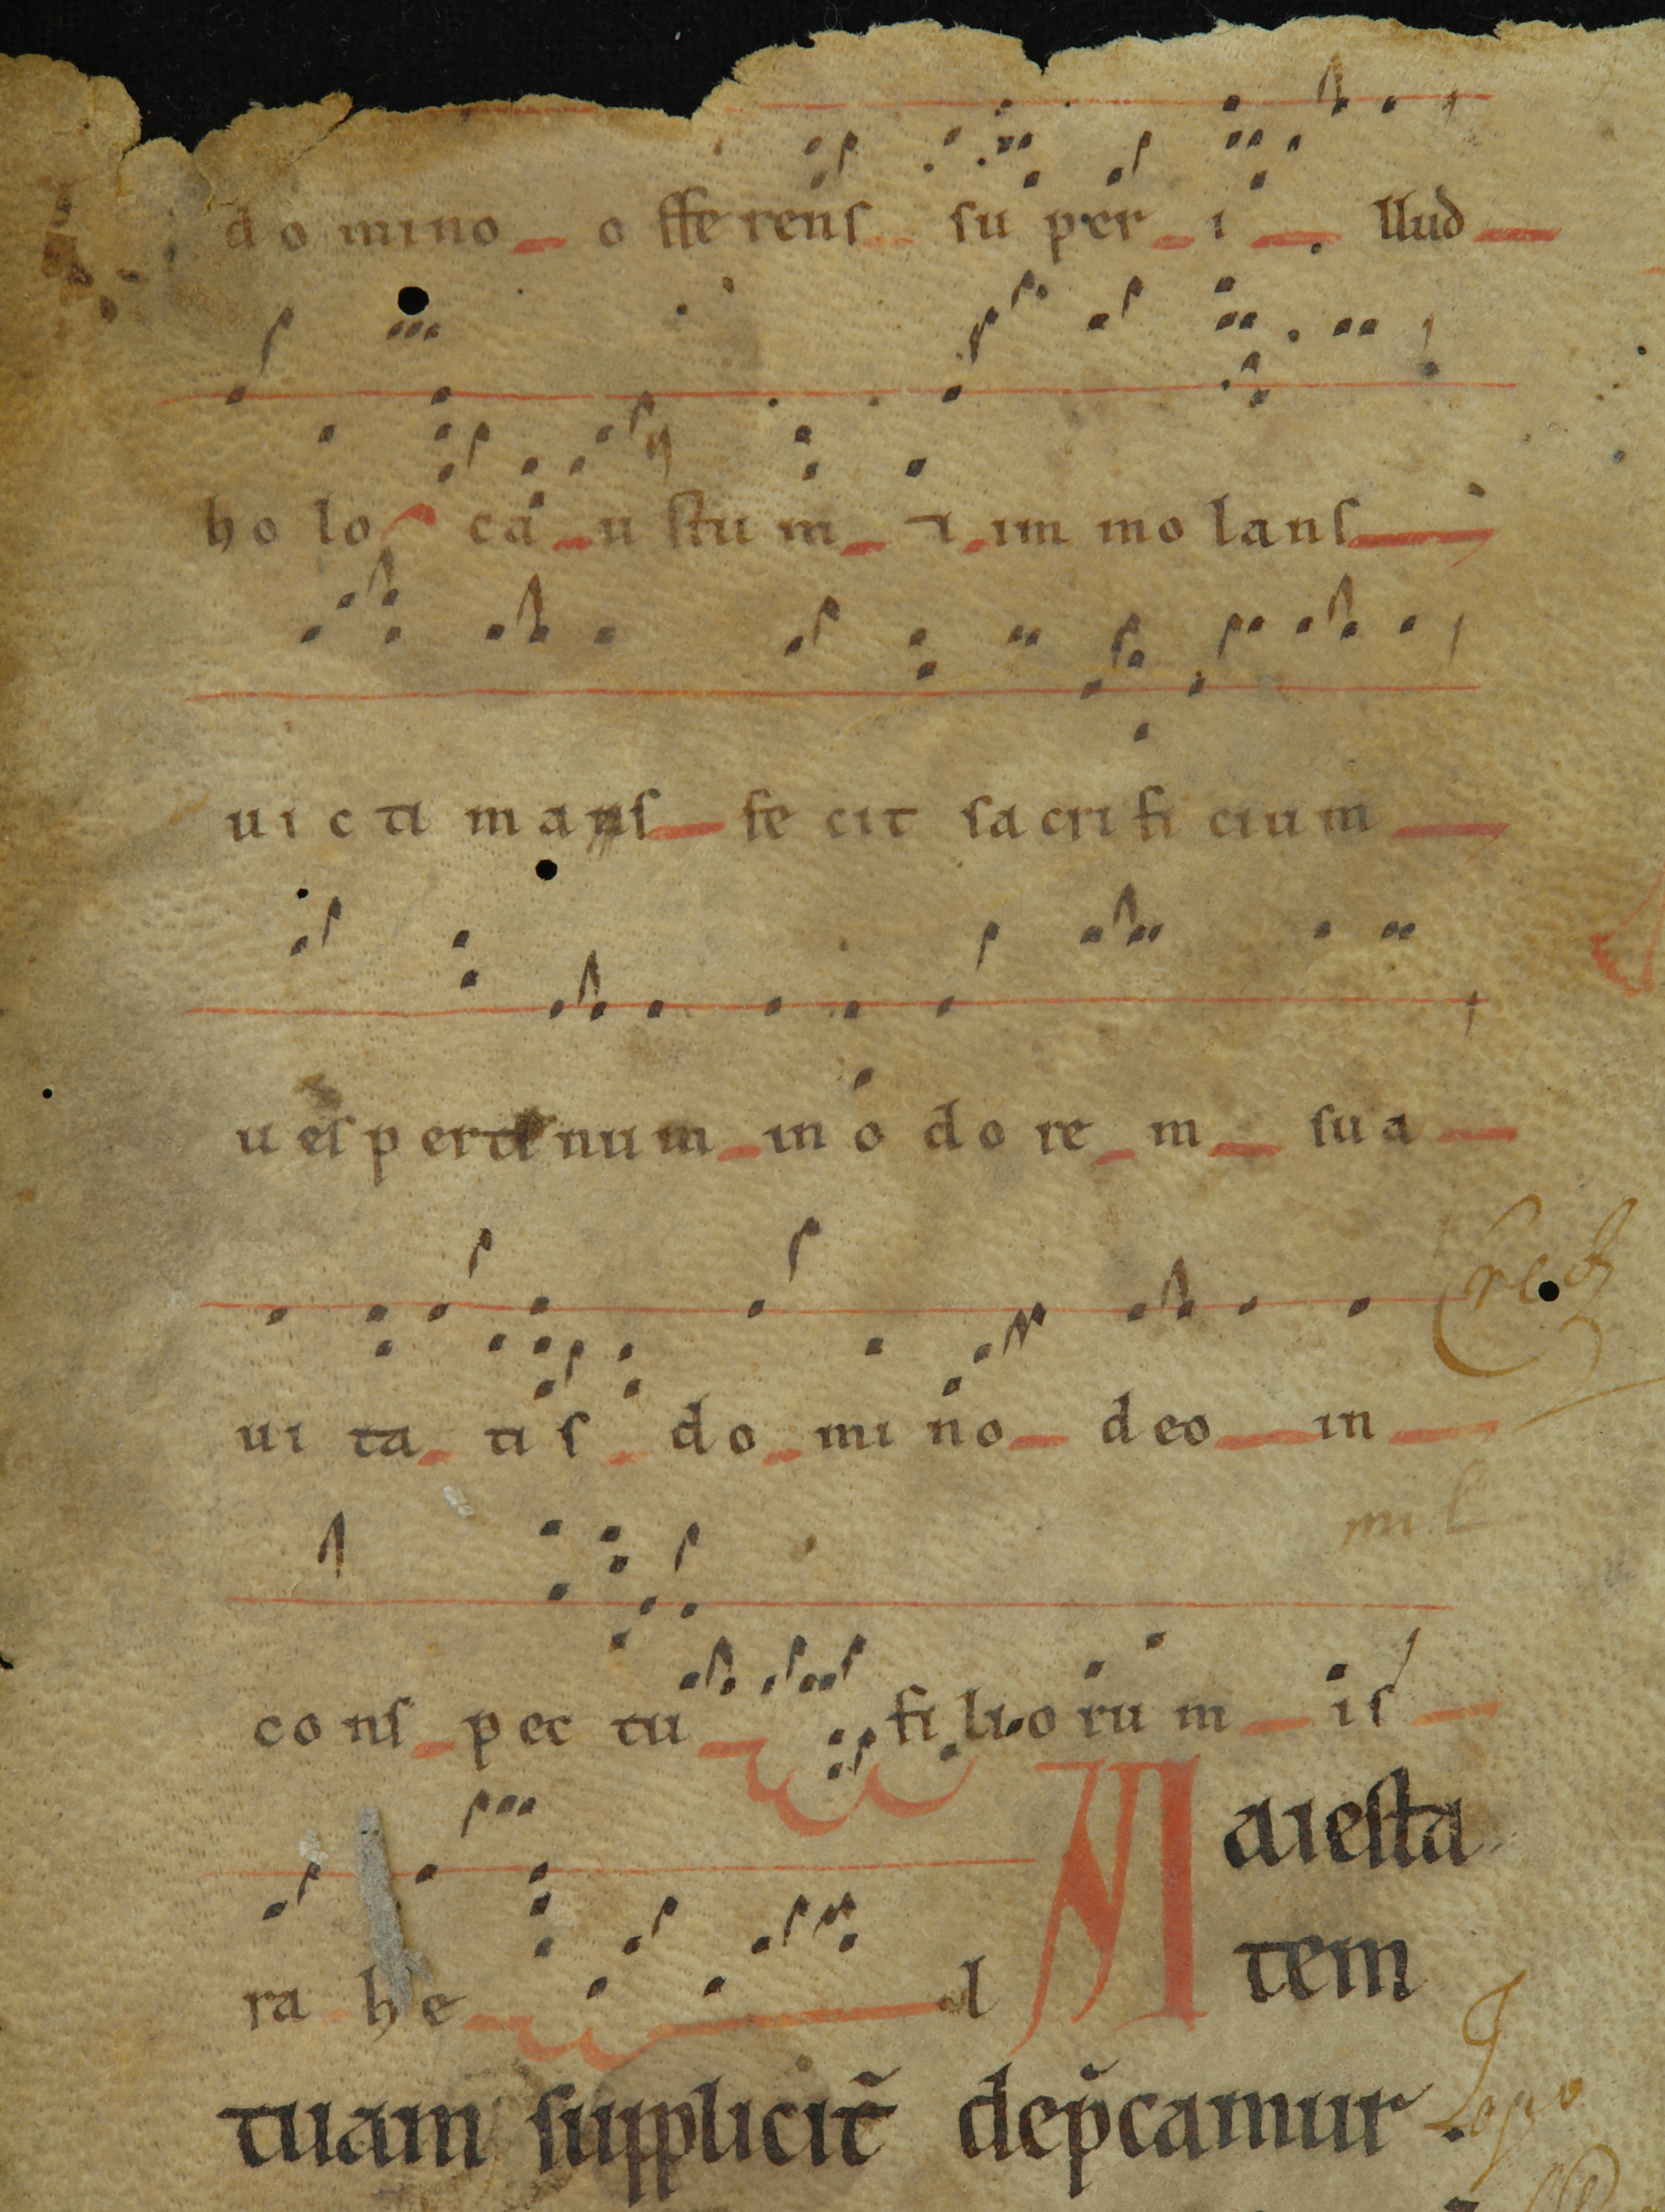 domino offerens super illud
holocaustum ⁊ immolans
uictimans fecit sacrificium
uespertinum in odorem sua
uitatis domino deo in
conspectu filiorum is
rahel Maiesta
tem
tuam suppliciť dep̃camur